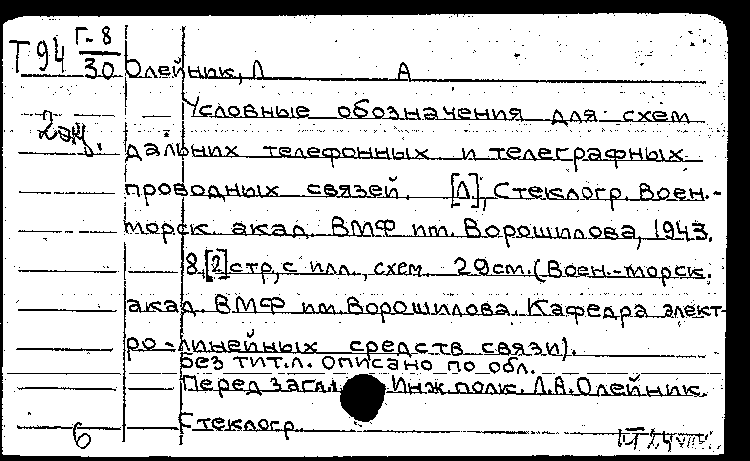 Т94 Г-8/30
Олейник, Л А
2 экз.
Условные обозначения для схем
дальних телефонных и телеграфных
проводных связей. [Л], Стеклогр. Воен.-
морск. акад. ВМФ им. Ворошилова, 1943.
8,[2]стр, с илл., схем. 29см. (Воен.-морск.
акад. ВМФ им. Ворошилова. Кафедра элект-
ро-линейных средств связи).
Без тит.л. Описано по обл.
Перед загл. Инж. полк. Л.А. Олейник.
Стеклогр.
6